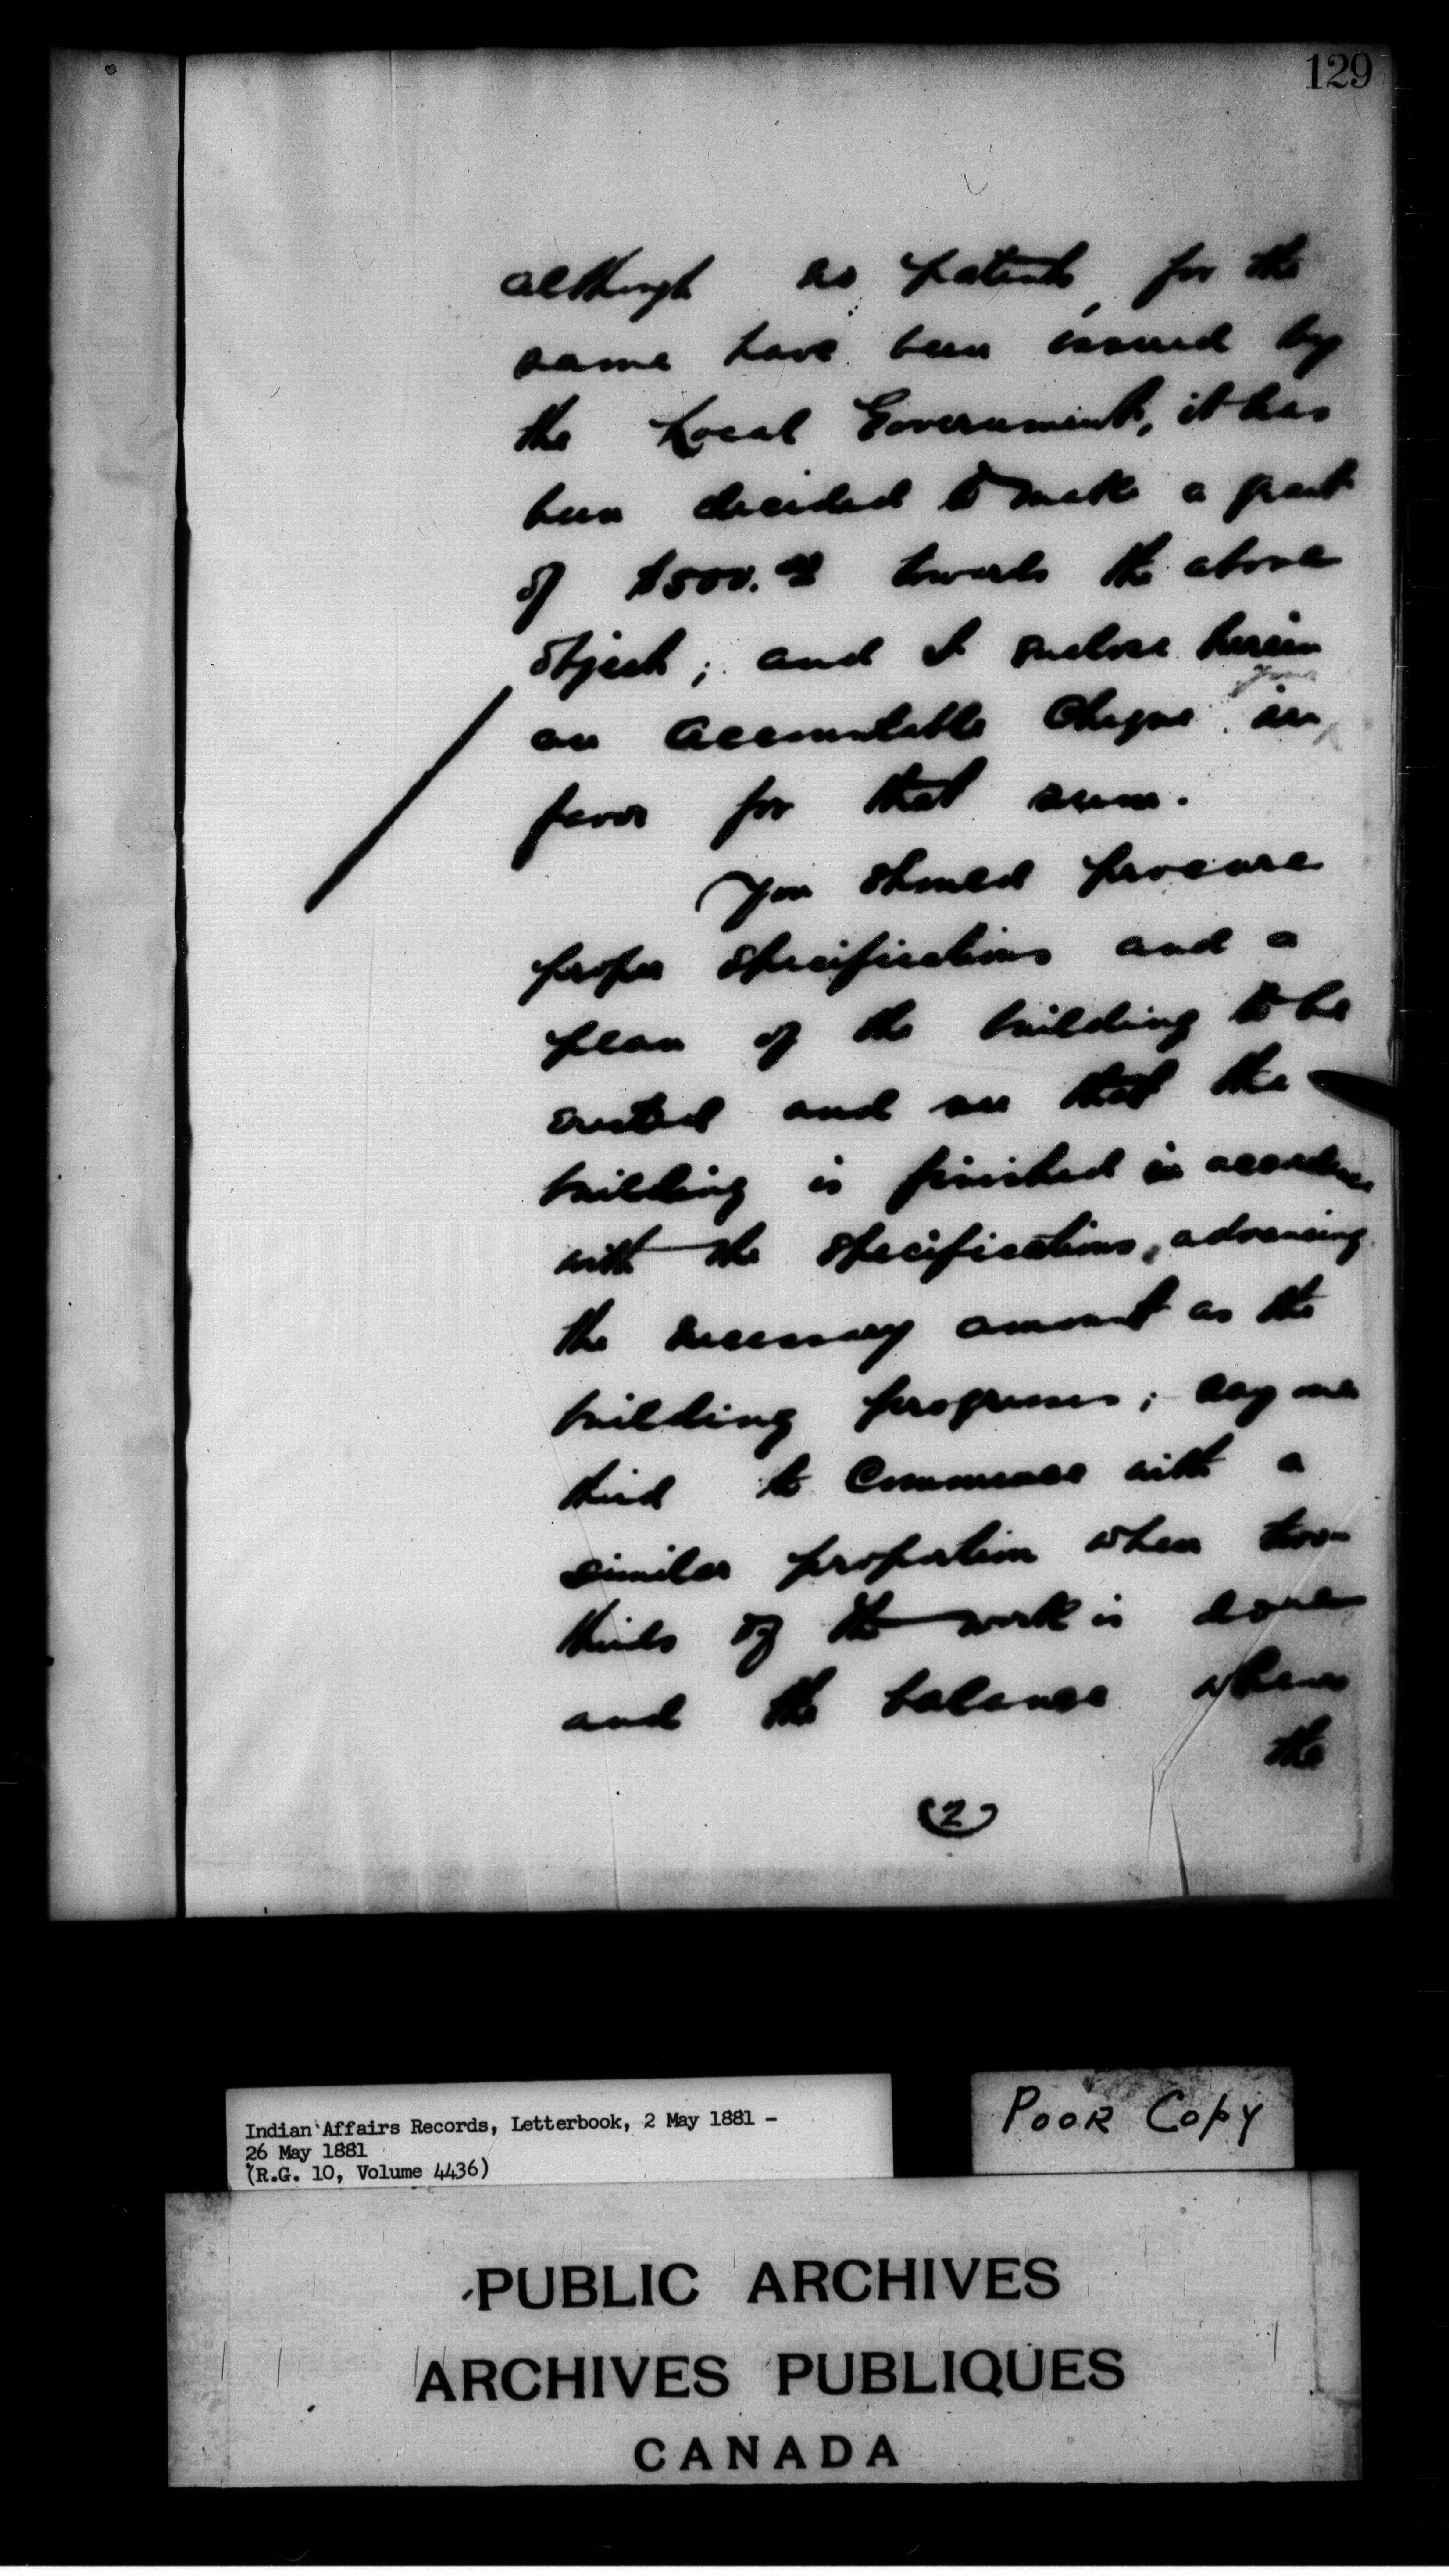 129
although no patents for the
same have been issued by
the Local Government, it has
been decided to make a grant
of $500.00 towards the above
object; and I enclose herein
your
an accountable cheque in
favor for that sum.
You should procure
proper specifications and a
plan of the building to be
erected and see that the
building is finished in accordance
with the specifications, advancing
the necessary amount as the
building progresses; say one
third to commence with a
similar proportion when two-
thirds of the work is done
and the balance when
the
(2)
Indian Affairs Records, Letterbook, 2 May 1881 -
26 May 1881
(R.G. 10, Volume 4436)
POOR COPY
PUBLIC ARCHIVES
ARCHIVES PUBLIQUES
CANADA